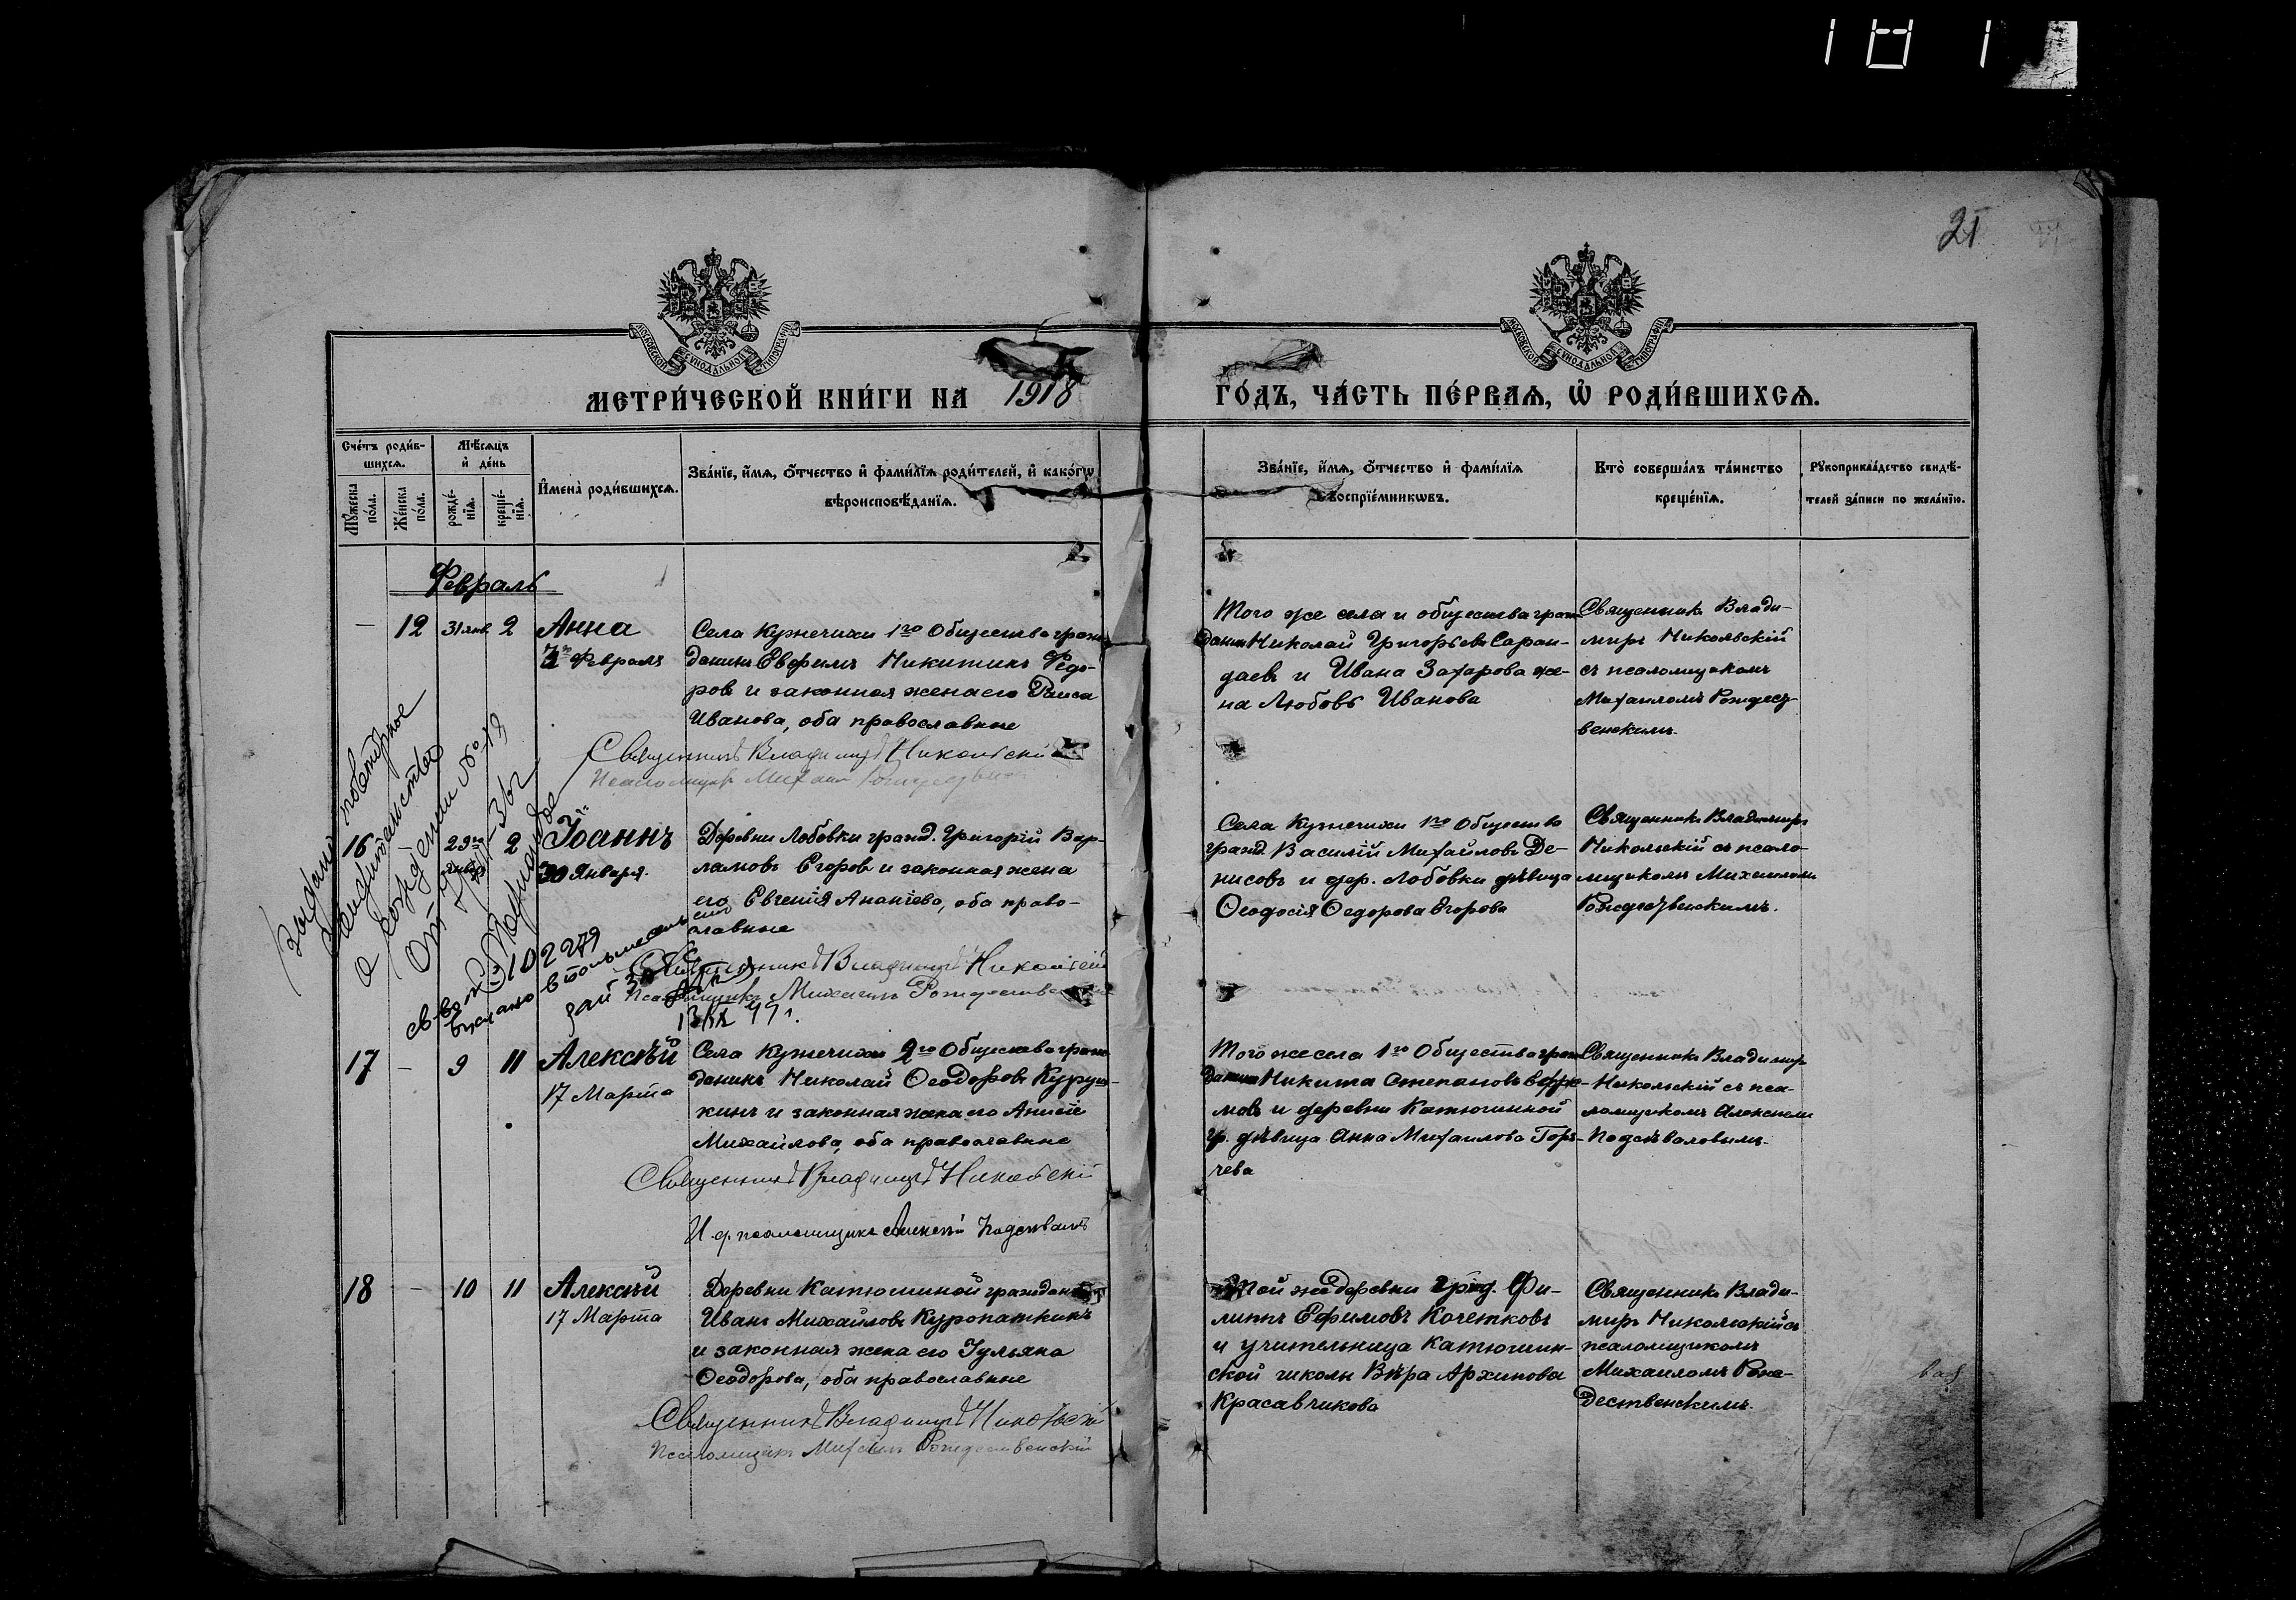 21
МОСКОВСКОЙ СѴНОДАЛЬНОЙ ТИПОГРАФІИ
МОСКОВСКОЙ СѴНОДАЛЬНОЙ ТИПОГРАФІИ
МЕТРИ́ЧЕСКОЙ КНИ́ГИ НА 1918 ГО́ДЪ, ЧА́СТЬ ПЕ́РВАѦ, Ѡ҆ РОДИ́ВШИХСѦ.
Сче́тъ роди́в-
шихсѧ.
Мꙋ́жеска по́ла.
Же́нска по́ла.
Мѣ́сѧцъ
и҆ де́нь
рожде́-
нїѧ.
креще́-
нїѧ.
И҆мена̀ роди́вшихсѧ.
Зва́нїе, и҆́мѧ, ѻ҆́тчество и҆ фами́лїѧ роди́телей, и҆ како́гѡ
вѣроисповѣ́данїѧ.
Зва́нїе, и҆́мѧ, ѻ҆́тчество и҆ фами́лїѧ
воспрїе́мникѡвъ.
Кто̀ соверша́лъ та́инство
креще́нїѧ.
Рꙋкоприкла́дство свидѣ́-
телей за́писи по жела́нїю.
Февраль
— 12 31 янв. 2 Анна
Февраль
Села Кузнечихи 1го Общества граж
данинъ Евфимъ Никитинъ Федо-
ровъ и законная жена его Раиса
Иванова, оба православные
Священникъ Владимиръ Никольскій
Псаломщикъ Михаилъ
Того же села и общества граж
данинъ Николай Григорьевъ Саран-
даевъ и Ивана Захарова же-
на Любовь Иванова
Священникъ Влади-
миръ Никольскій
съ псаломщикомъ
Михаиломъ Рождест
венскимъ.
Выдано повторное
свидетельство
о рождении № 19
16 29го 2 Іоаннъ
30 Января.
Деревни Лобовки гражд. Григорій Вар-
ламовъ Егоровъ и законная жена
его Евгенія Ананіева, оба право-
славные
Священникъ Владимиръ Никольскій
Псаломщикъ Михаилъ Рождественскій
102279
Села Кузнечихи 1го Общества
гражд. Василій Михайловъ Де-
нисовъ и дер. Лобовки дѣвица
Ѳеодосія Ѳедорова Егорова
Священникъ Владимиръ
Никольскій съ псало-
мщикомъ Михаиломъ
Рождественскимъ.
17 — 9 11 Алексѣй
17 Марта
Села Кузнечихи 2го Общества граж
данинъ Николай Ѳеодоровъ Куруш-
кинъ и законная жена его
Михайлова, оба православные
Священникъ Владимиръ Никольскій
И. д. псаломщика Алексѣй
Того же села 1го Общества граж
данинъ Никита Степановъ
мовъ и деревни Катюшиной
гр. дѣвица Анна Михайлова Горя-
чева
Священникъ Владимиръ
Никольскій съ пса-
ломщикомъ Алексѣемъ
18 — 10 11 Алексѣй
17 Марта
Деревни Катюшиной гражданинъ
Иванъ Михайловъ Куропаткинъ
и законная жена его Іульяна
Ѳеодорова, оба православные
Священникъ Владимиръ Никольскій
Псаломщикъ Михаилъ Рождественскій
Той же деревни гржд. Фи-
липпъ Ефимовъ Кочетковъ
и учительница Катюшин-
ской школы Вѣра Архипова
Красавчикова
Священникъ Влади-
миръ Никольскій съ
псаломщикомъ
Михаиломъ Рож-
дественскимъ.